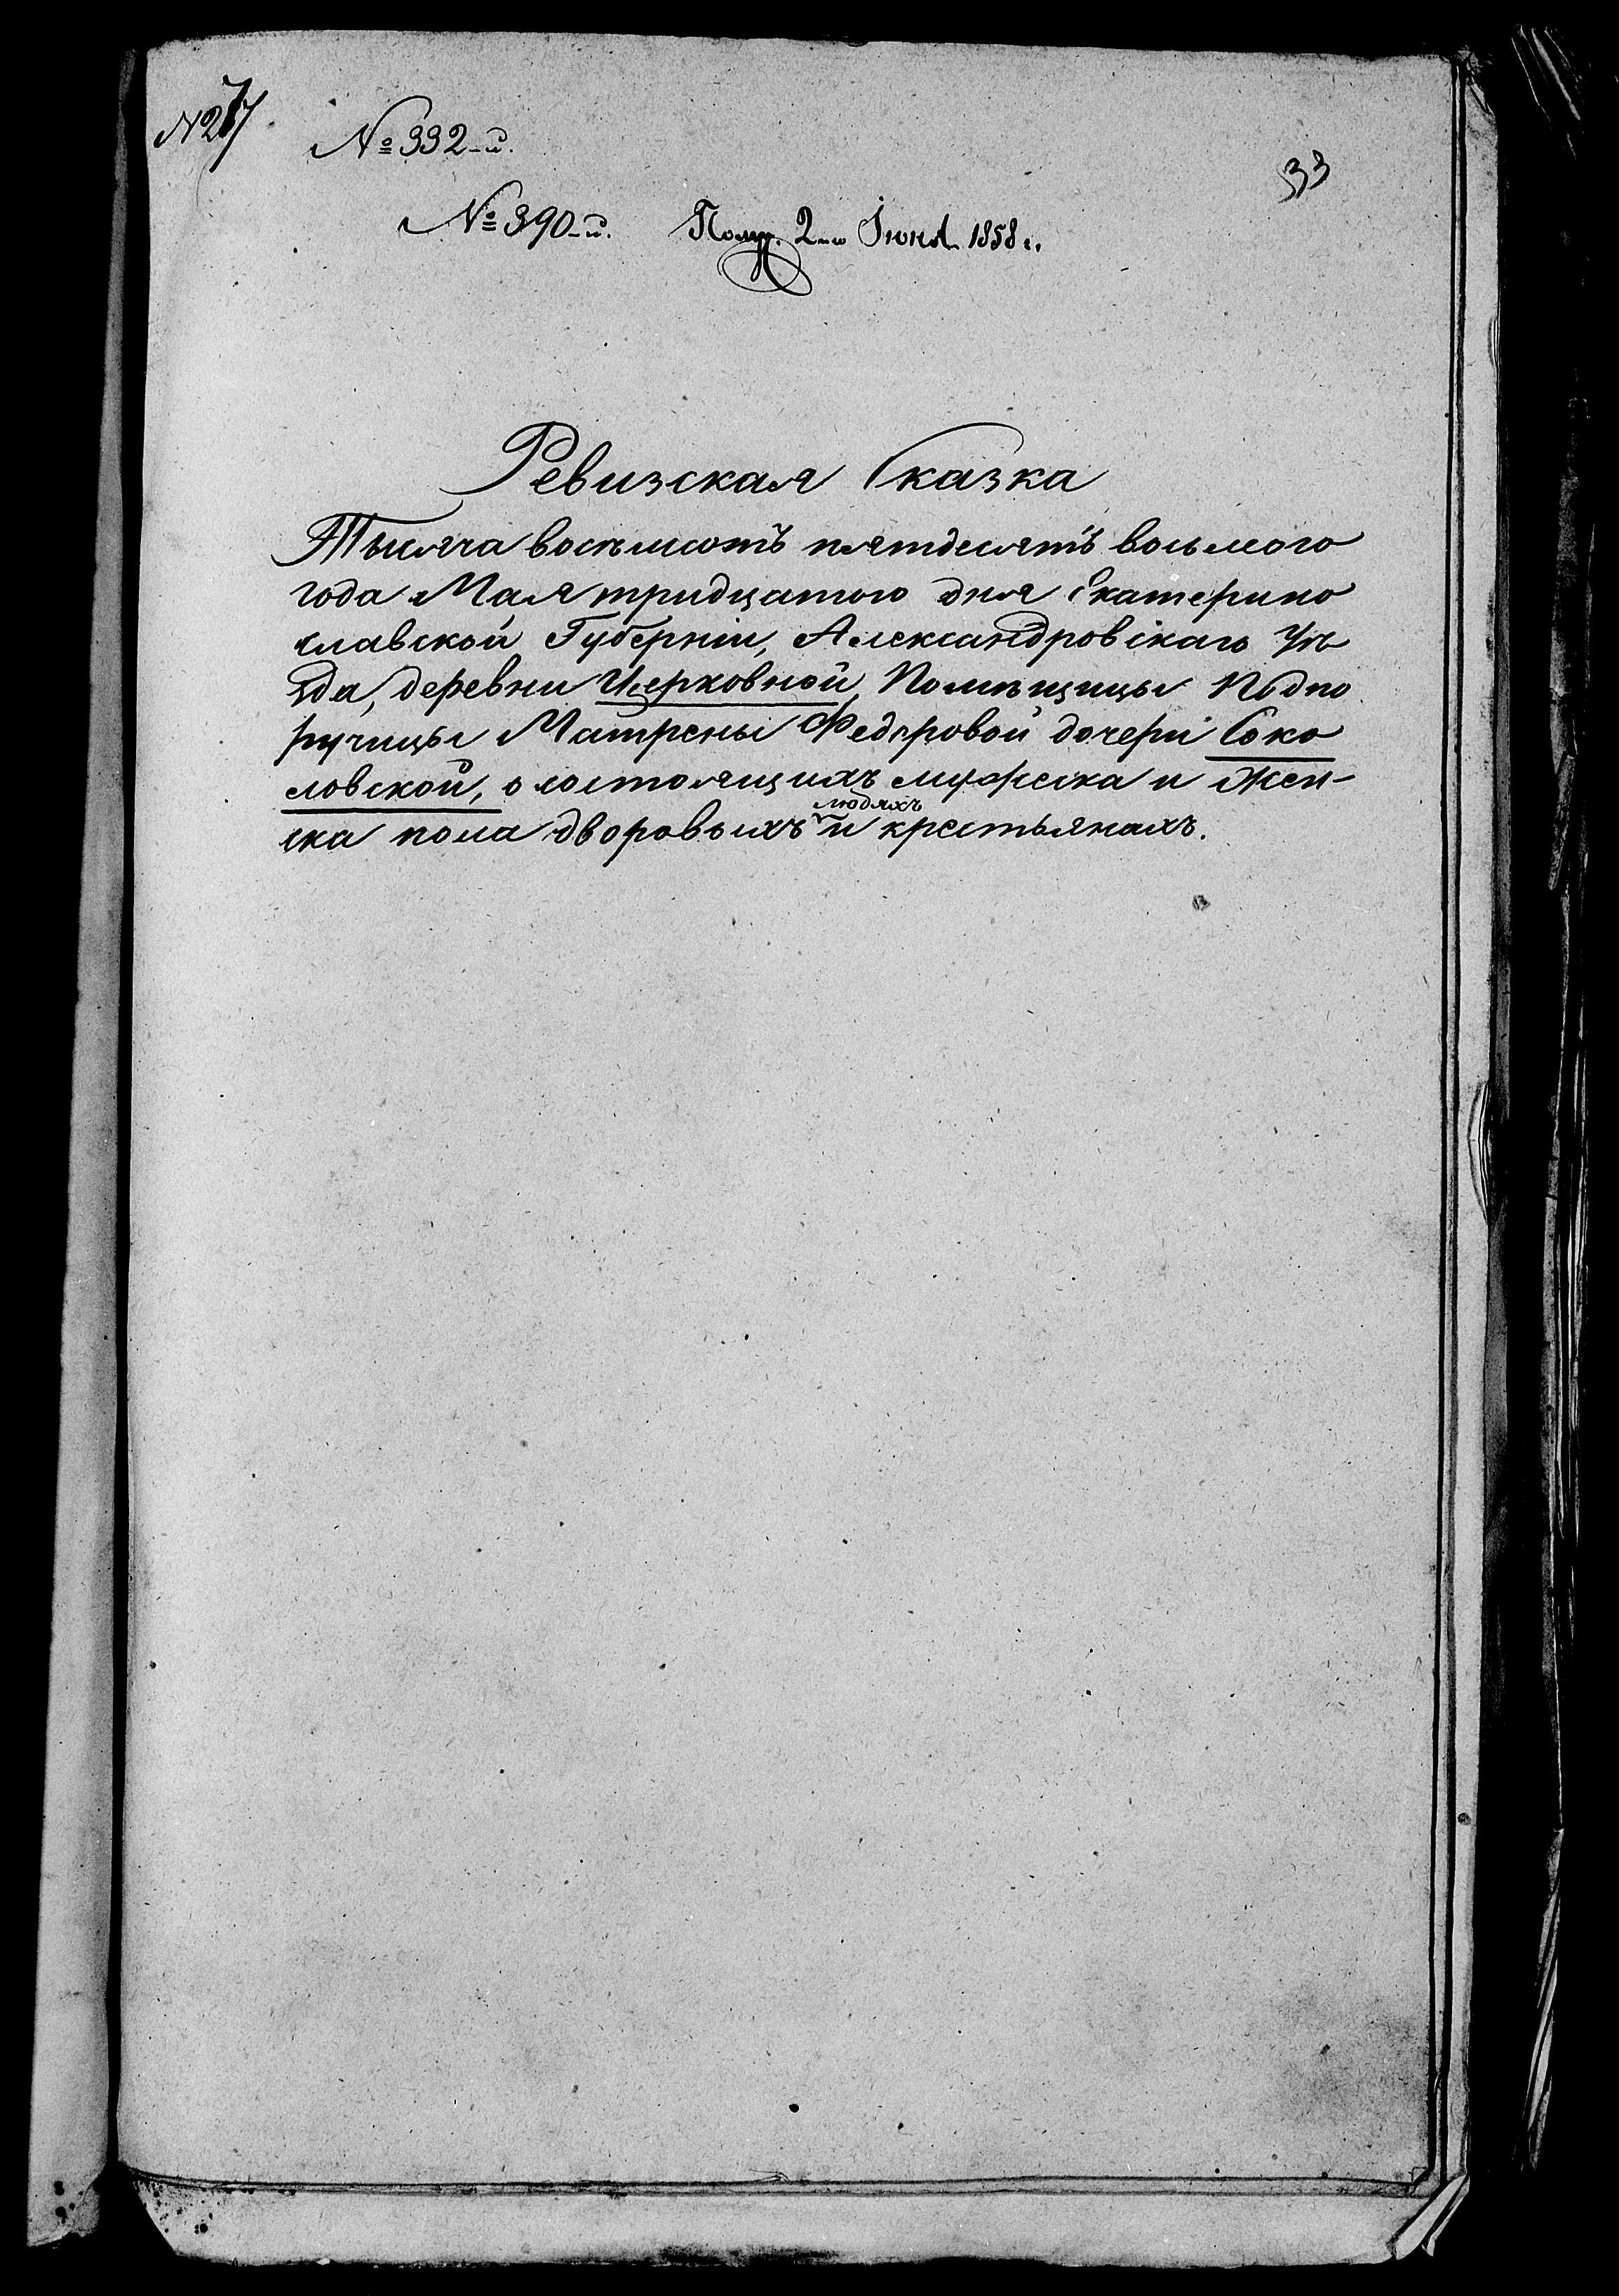 № 277
№ 332-й.
33
№ 390-й. Получ. 2-го Іюня 1858 г.
Ревизская Сказка
Тысяча восемьсотъ пятдесятъ восьмого
года Мая тридцатого дня Екатерино
славской Губерніи, Александровскаго Уѣ
зда, деревни Церковной, Помѣщицы Подпо
ручицы Матрены Федоровой дочери Соко
ловской, о состоящихъ мужеска и жен-
ска пола дворовыхъ людяхъ и крестьянахъ.